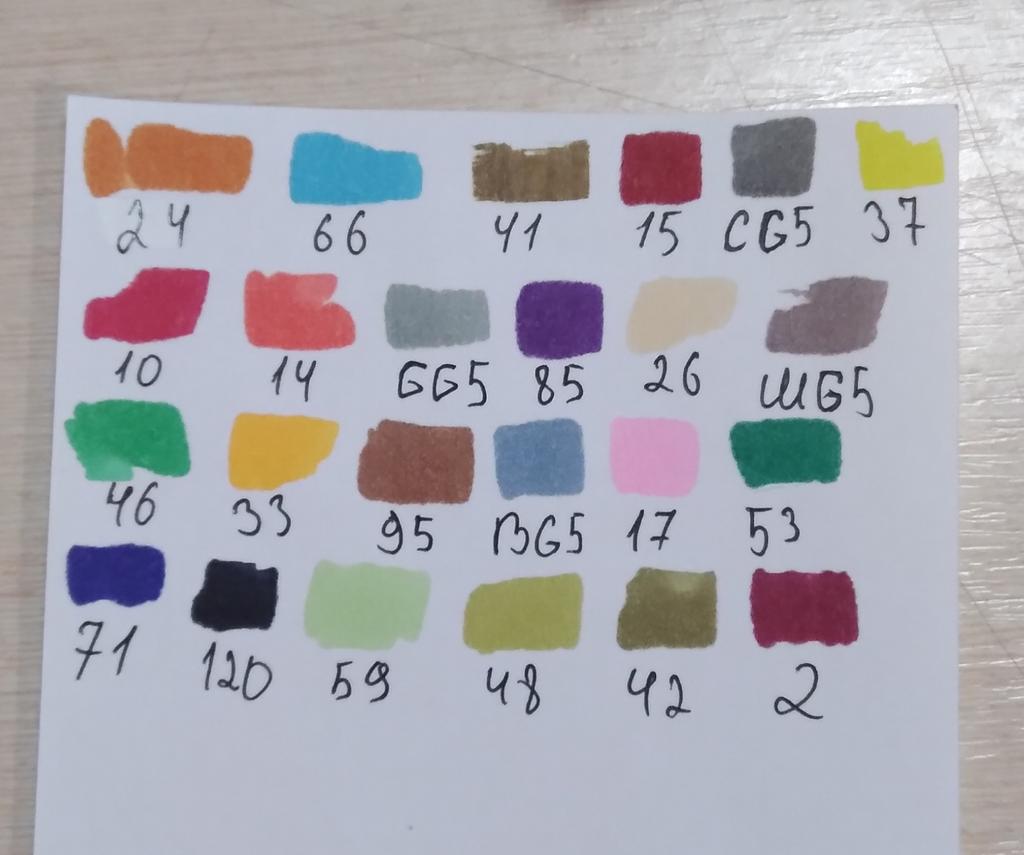 24 66 41 15 CG5 37
10 14 GG5 85 26 WG5
46 33 95 BG5 17 53
71 120 59 48 42 2